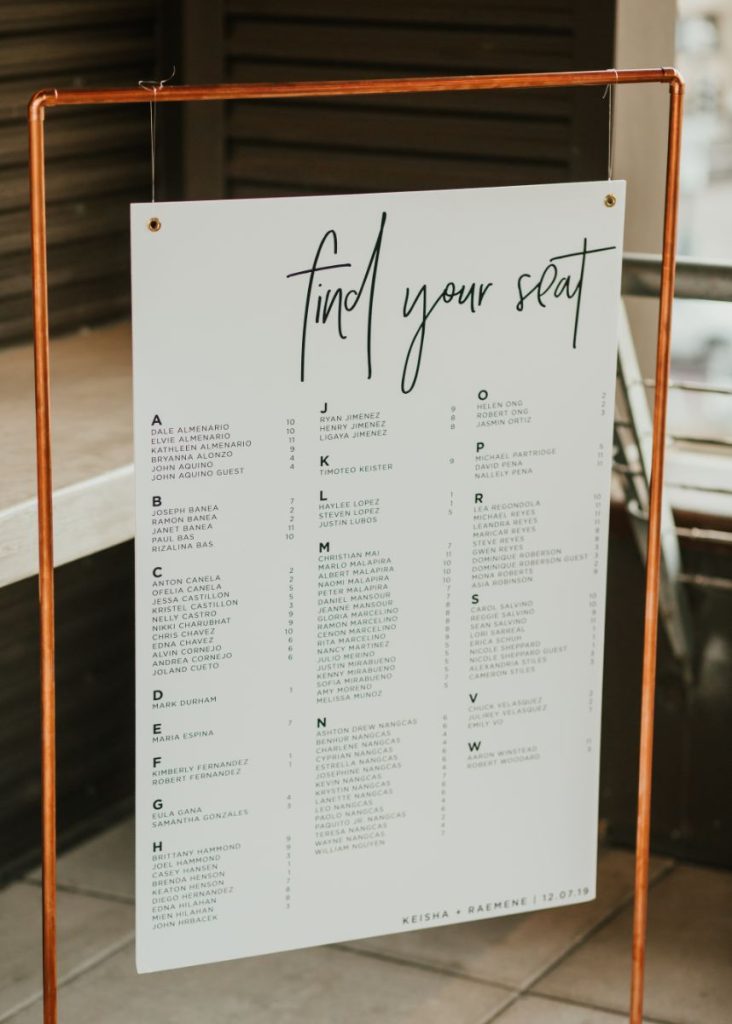 find your seat
A
DALE ALMENARIO 10
ELVIE ALMENARIO 10
KATHLEEN ALMENARIO 11
BRYANNA ALONZO 9
JOHN AQUINO 4
JOHN AQUINO GUEST 4
B
JOSEPH BANEA 7
RAMON BANEA 2
JANET BANEA 2
PAUL BAS 11
RIZALINA BAS 10
C
ANTON CANELA 2
OFELIA CANELA 2
JESSA CASTILLON 5
KRISTEL CASTILLON 5
NELLY CASTRO 3
NIKKI CHARUBHAT 9
CHRIS CHAVEZ 9
EDNA CHAVEZ 10
ALVIN CORNEJO 6
ANDREA CORNEJO 6
JOLAND CUETO 6
D
MARK DURHAM 1
E
MARIA ESPINA 7
F
KIMBERLY FERNANDEZ 1
ROBERT FERNANDEZ 1
G
EULA GANA 4
SAMANTHA GONZALES 3
H
BRITTANY HAMMOND 9
JOEL HAMMOND 9
CASEY HANSEN 3
BRENDA HENSON 1
KEATON HENSON 1
DIEGO HERNANDEZ 7
EDNA HILAHAN 8
MIEN HILAHAN 8
JOHN HRBACEK 3
J
RYAN JIMENEZ 9
HENRY JIMENEZ 8
LIGAYA JIMENEZ 8
K
TIMOTEO KEISTER 9
L
HAYLEE LOPEZ 1
STEVEN LOPEZ 1
JUSTIN LUBOS 5
M
CHRISTIAN MAI 7
MARLO MALAPIRA 11
ALBERT MALAPIRA 10
NAOMI MALAPIRA 10
PETER MALAPIRA 10
DANIEL MANSOUR 7
JEANNE MANSOUR 7
GLORIA MARCELINO 8
RAMON MARCELINO 8
CENON MARCELINO 8
RITA MARCELINO 9
NANCY MARTINEZ 5
JULIO MERINO 5
JUSTIN MIRABUENO 5
KENNY MIRABUENO 5
SOFIA MIRABUENO 5
AMY MORENO 7
MELISSA MUÑOZ 5
N
ASHTON DREW NANGCAS 6
BENHUR NANGCAS 6
CHARLENE NANGCAS 4
CYPRIAN NANGCAS 6
ESTRELLA NANGCAS 6
JOSEPHINE NANGCAS 4
KEVIN NANGCAS 7
KRYSTIN NANGCAS 6
LANETTE NANGCAS 6
LEO NANGCAS 6
PAOLO NANGCAS 4
PAQUITO JR. NANGCAS 6
TERESA NANGCAS 2
WAYNE NANGCAS 4
WILLIAM NGUYEN 7
O
HELEN ONG 2
ROBERT ONG 2
JASMIN ORTIZ 3
P
MICHAEL PARTRIDGE 5
DAVID PENA 11
NALLELY PENA 11
R
LEA REGONDOLA 10
MICHAEL REYES 11
LEANDRA REYES 11
MARICAR REYES 11
STEVE REYES 8
GWEN REYES 8
DOMINIQUE ROBERSON 3
DOMINIQUE ROBERSON GUEST 3
MONA ROBERTS 2
ASIA ROBINSON 9
S
CAROL SALVINO 10
REGGIE SALVINO 10
SEAN SALVINO 9
LORI SARREAL 11
ERICA SCHUH 1
NICOLE SHEPPARD 1
NICOLE SHEPPARD GUEST 1
ALEXANDRIA STILES 3
CAMERON STILES 3
V
CHUCK VELASQUEZ 2
JULIREY VELASQUEZ 2
EMILY VO 7
W
AARON WINSTEAD 11
ROBERT WOODARD 5
KEISHA + RAEMENE | 12.07.19